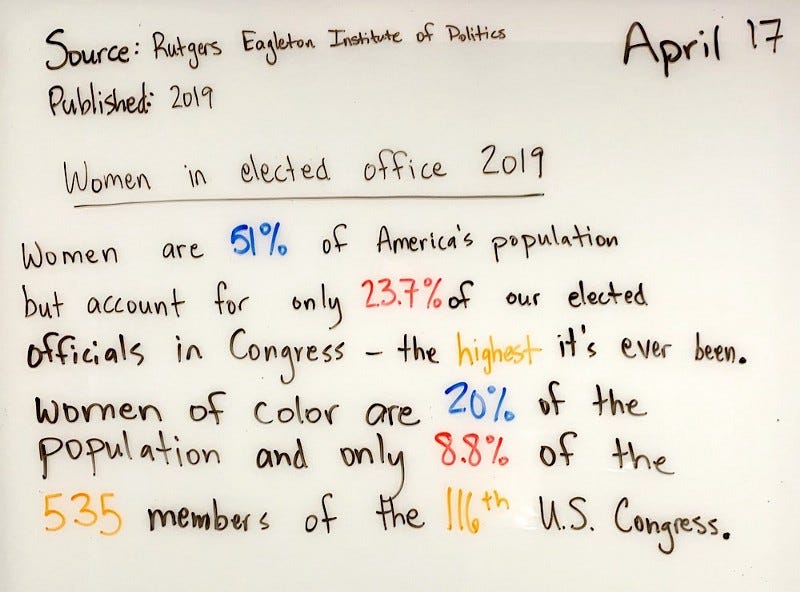 Source: Rutgers Eagleton Institute of Politics
April 17
Published: 2019
Women in elected office 2019
Women are 51% of America's population
but account for only 23.7% of our elected
officials in Congress – the highest it's ever been.
Women of color are 20% of the
population and only 8.8% of the
535 members of the 116th U.S. Congress.